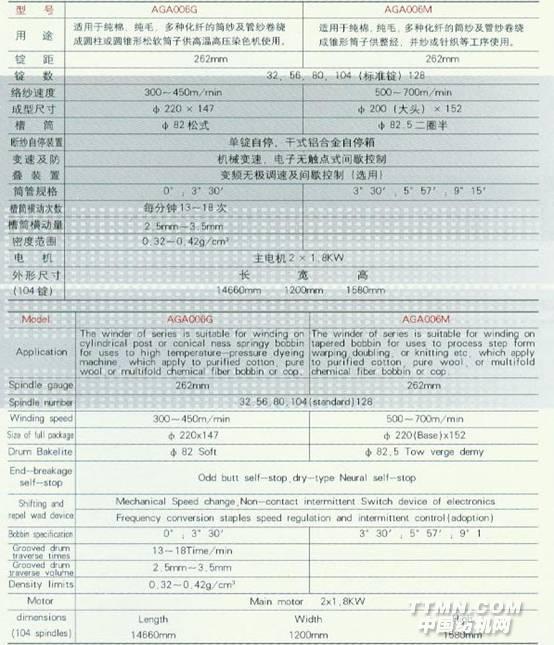 型 号 AGA006G AGA006M
用 途 适用于纯棉、纯毛、多种化纤的筒纱及管纱卷绕 适用于纯棉、纯毛、多种化纤的筒纱及管纱卷绕
成圆柱或圆锥形松软筒子供高温高压染色机使用。 成锥形筒子供整经、并纱或针织等工序使用。
锭 距 262mm 262mm
锭 数 32、56、80、104（标准锭）128
络纱速度 300～450m/min 500～700m/min
成型尺寸 φ 220 × 147 φ 200 (大头) × 152
槽 筒 φ 82 松式 φ 82.5 二圈半
断纱自停装置 单锭自停、干式铝合金自停箱
变速及防 机械变速、电子无触点式间歇控制
叠 装 置 变频无极调速及间歇控制（选用）
筒管规格 0°，3°30′ 3°30′，5°57′，9°15′
槽筒横动次数 每分钟 13～18 次
槽筒横动量 2.5mm～3.5mm
密度范围 0.32～0.42g/cm³
电 机 主电机 2 × 1.8KW
外形尺寸 长 宽 高
(104 锭) 14660mm 1200mm 1580mm
Model AGA006G AGA006M
Application The winder of series is suitable for winding on cylindrical post or conical ness springy bobbin for uses to high temperature-pressure dyeing machine, which apply to purified cotton, pure wool,or multifold chemical fiber bobbin or cop. The winder of series is suitable for winding on tapered bobbin for uses to process step form warping,doubling, or knitting etc, which apply to purified cotton, pure wool, or multifold chemical fiber bobbin or cop.
Spindle gauge 262mm 262mm
Spindle number 32.56.80.104(standard)128
Winding speed 300～450m/min 500～700m/min
Size of full package φ 220x147 φ 220(Base)x152
Drum Bakelite φ 82 Soft φ 82.5 Tow verge demy
End-breakage
self-stop Odd butt self-stop,dry-type Neural self-stop
Shifting and Mechanical Speed change,Non-contact intermittent Switch device of electronics
repel wad device Frequency conversion staples speed regulation and intermittent control(adoption)
Bobbin specification 0°，3°30′ 3°30′，5°57′，9°1
Grooved drum
traverse times 13～18Time/min
Grooved drum
traverse volume 2.5mm～3.5mm
Density limits 0.32～0.42g/cm³
Motor Main motor 2x1.8KW
dimensions Length Width
(104 spindles) 14660mm 1200mm 1580mm
TTMN.COM
中国纺机网